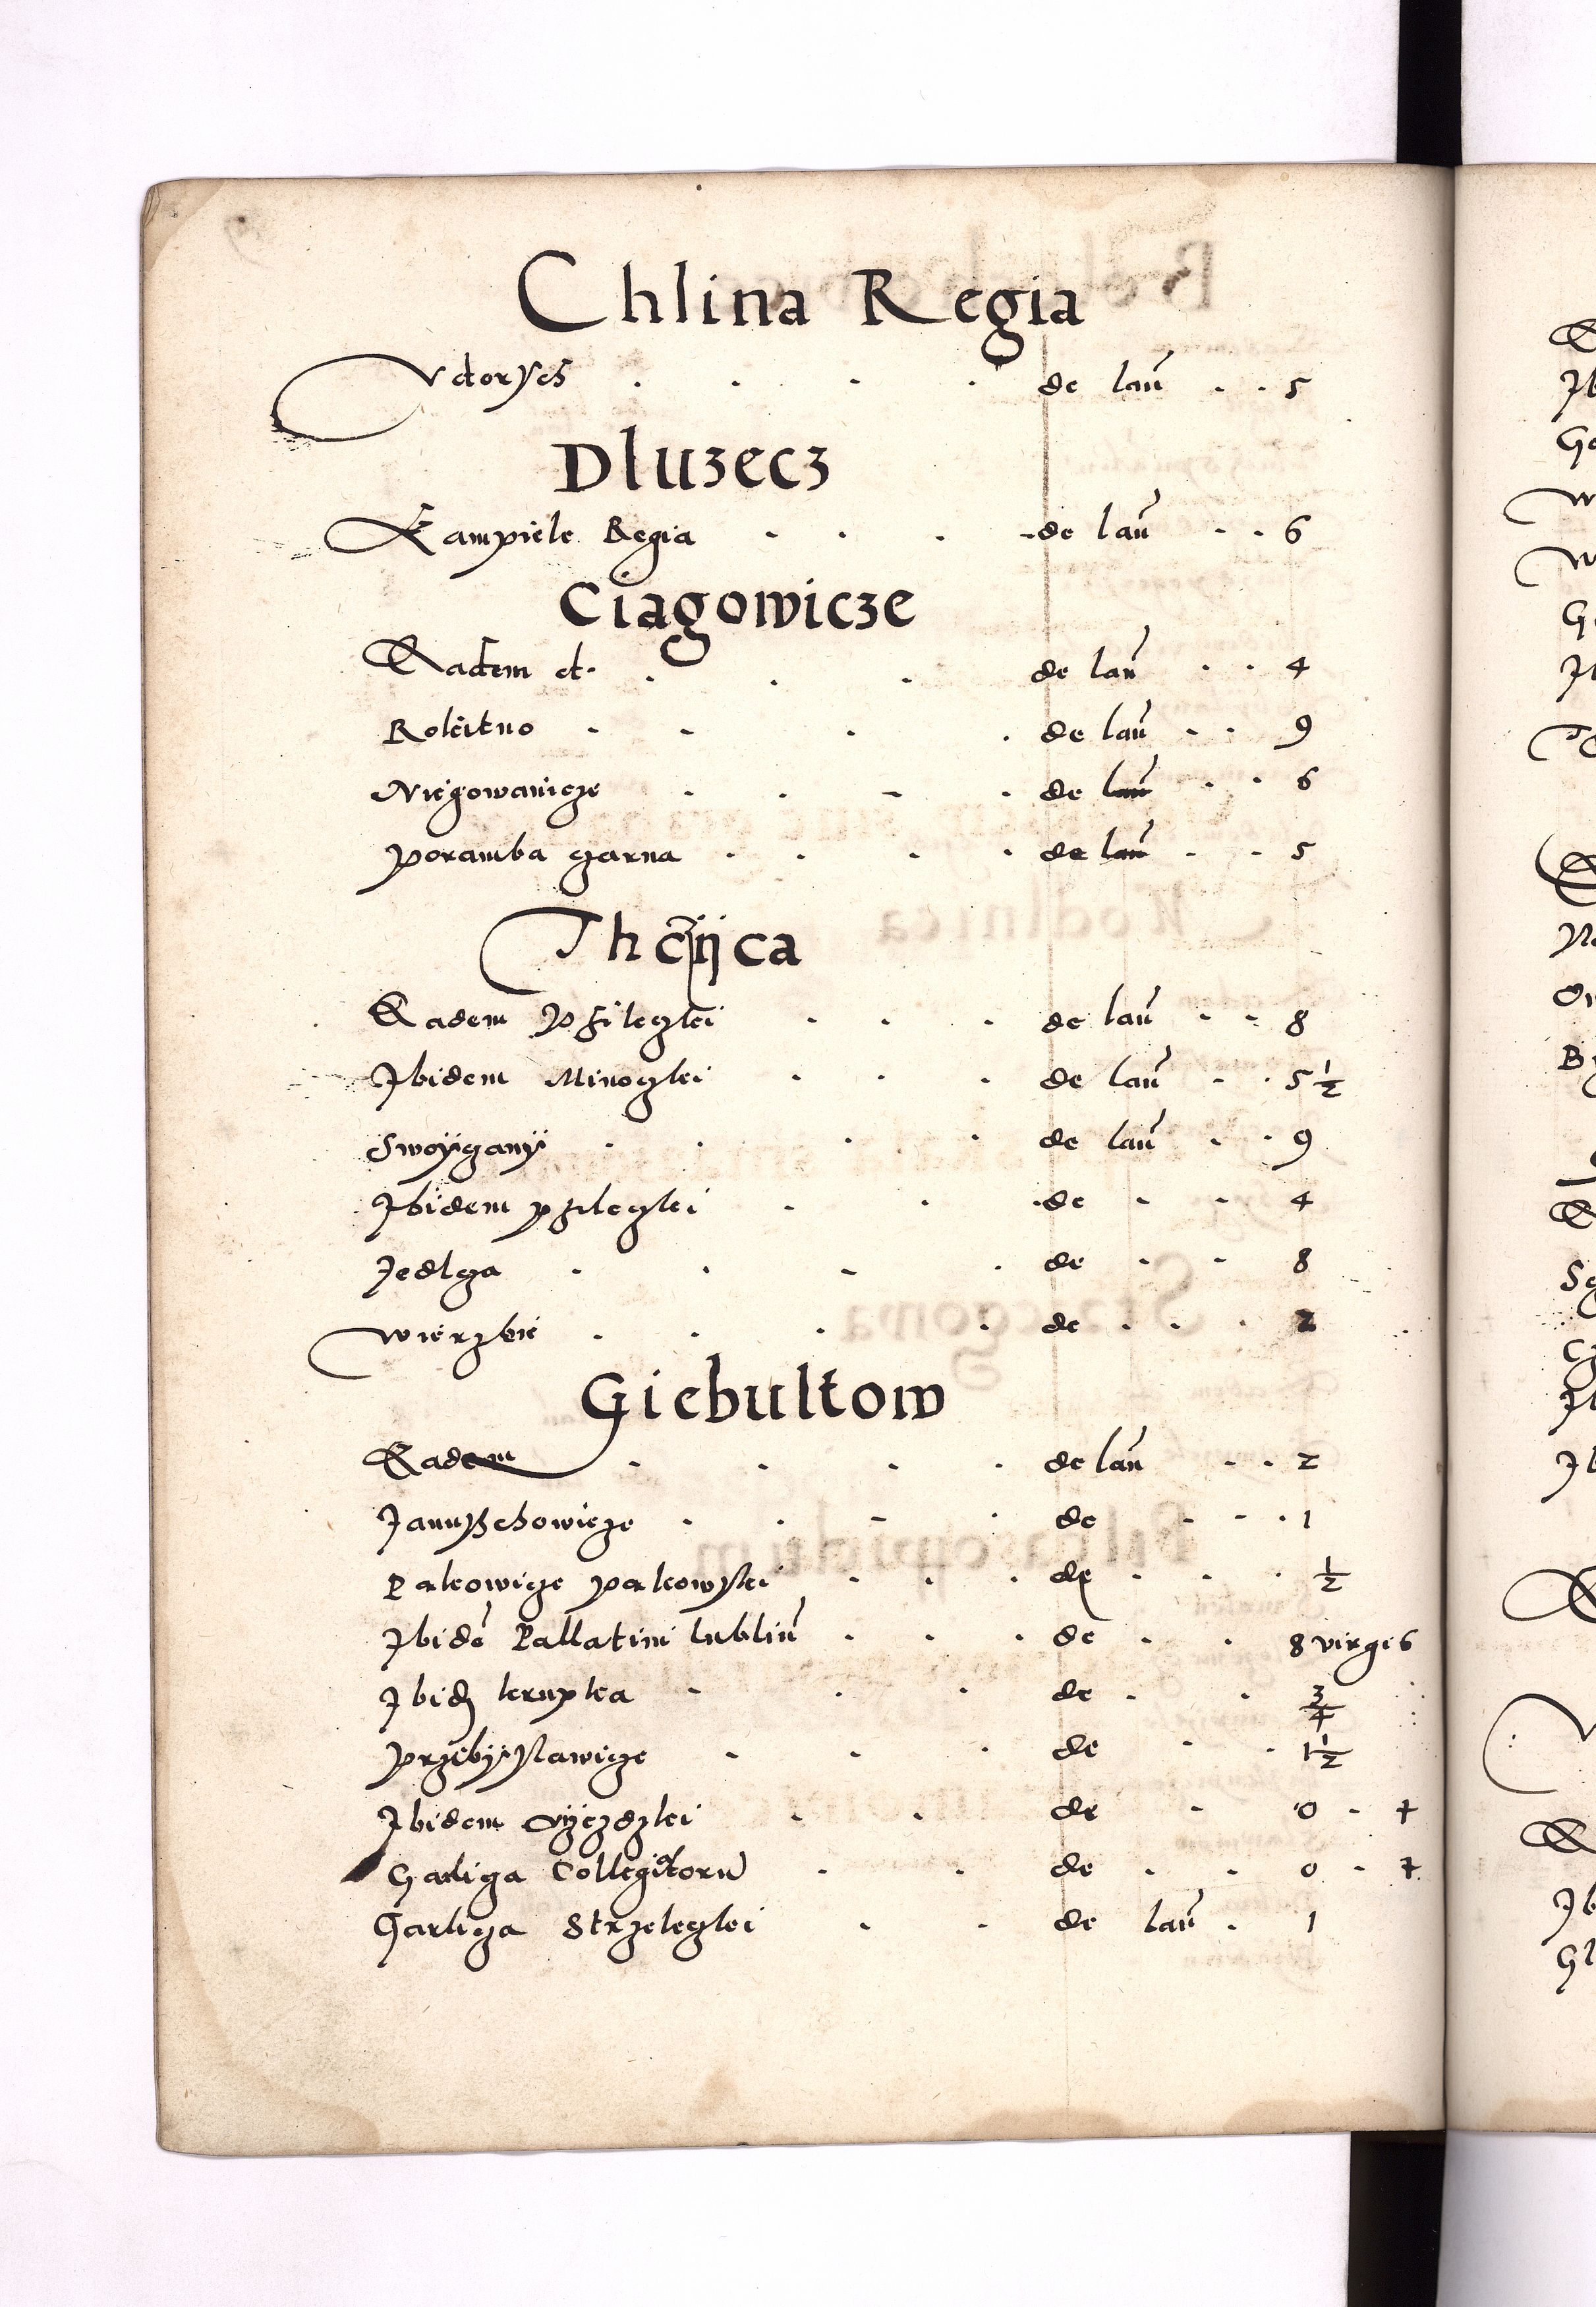 Chlina Regia
Vdorycs . . . . de lan̄ . . 5
Dluzecz
Kampiele Regia . . . de lan̄ . . 6
Ciagowicze
Eadem et. . . . de lan̄ . . 4
Rokitno . . . . de lan̄ . . 9
Niegowanicze . . . . de lan̄ . . 6
Poramba czarna . . . . de lan̄ . . 5
Thczijca
Eadem Pzileczkei . . . de lan̄ . . 8
Ibidem Minoczkei . . . de lan̄ . . 5 1/2
Swoijczany . . . . de lan̄ . . 9
Ibidem pzileczkei . . . de . . 4
Jedlcza . . . . de . . 8
Wierzbie . . . . de . . . 2
Giebultow
Eadem . . . . de lan̄ . . 2
Janußchowicze . . . . de . . . 1
Palcowicze palcowskei . . . de . . . 1/2
Ibidē Pallatini lublin̄ . . . de . . 8 virgis
Ibid . . . de . . 3/4
Przebijslawicze . . . de . . 1 1/2
Ibidem . . de . 0 . 4
Garlicza Collegiatorū . . de . . 0 . 7
Garlicza Strzeleczkei . . de lan̄ . 1